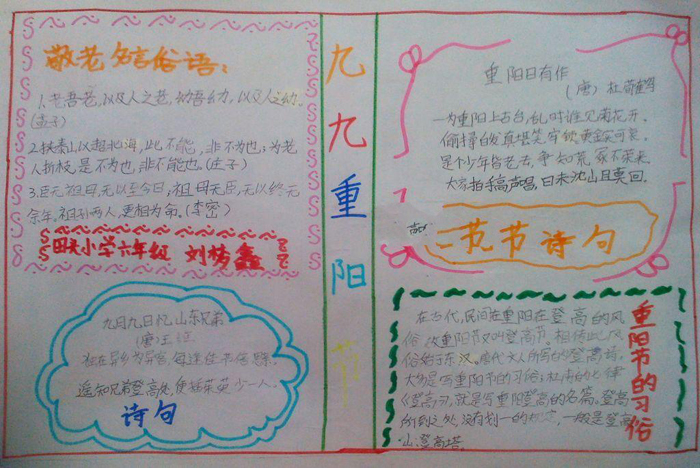 敬老名言俗语：
1.老吾老,以及人之老,幼吾幼,以及人之幼.
(孟子)
2.挟泰山,以超北海,此不能,非不为也;为老
人折枝,是不为也,非不能也.(孟子)
3.臣无祖母,无以至今日,祖母无臣,无以终
余年,祖孙两人,更相为命.(李密)
小学六年级 刘梦鑫
九月九日忆山东兄弟
(唐)王
独在异乡为异客,每逢佳节倍思亲.
遥知兄弟登高处,便插茱萸少一人.
诗句
九
九
重
阳
节
重阳日有作
(唐)杜荀鹤
一为重阳上古台,乱时谁见菊花开.
偷挦白发真堪笑,牢锁黄金实可哀.
是个少年皆老去,争知荒冢不荣来.
大家拍手高声唱,日未沈山且莫回.
节诗句
在古代,民间在重阳在登高的风
俗,故重阳节又叫登高节.相传此风
俗始于东汉.唐代文人所写的登高诗
大多是写重阳节的习俗;杜甫的七律
《登高》,就是写重阳登高的名篇.登高
所到之处,没有划一的规定,一般是登高
山、登高塔.
重阳节的习俗